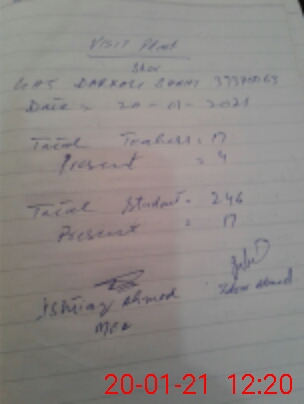 VISIT PROof
GHS DARKALI SHARI
Date = 20-01-2021
Total Teachers = 17
Present = 4
Total Student = 246
Present = 17
Ishtiaq Ahmed
MEA
Ahmed
20-01-21 12:20